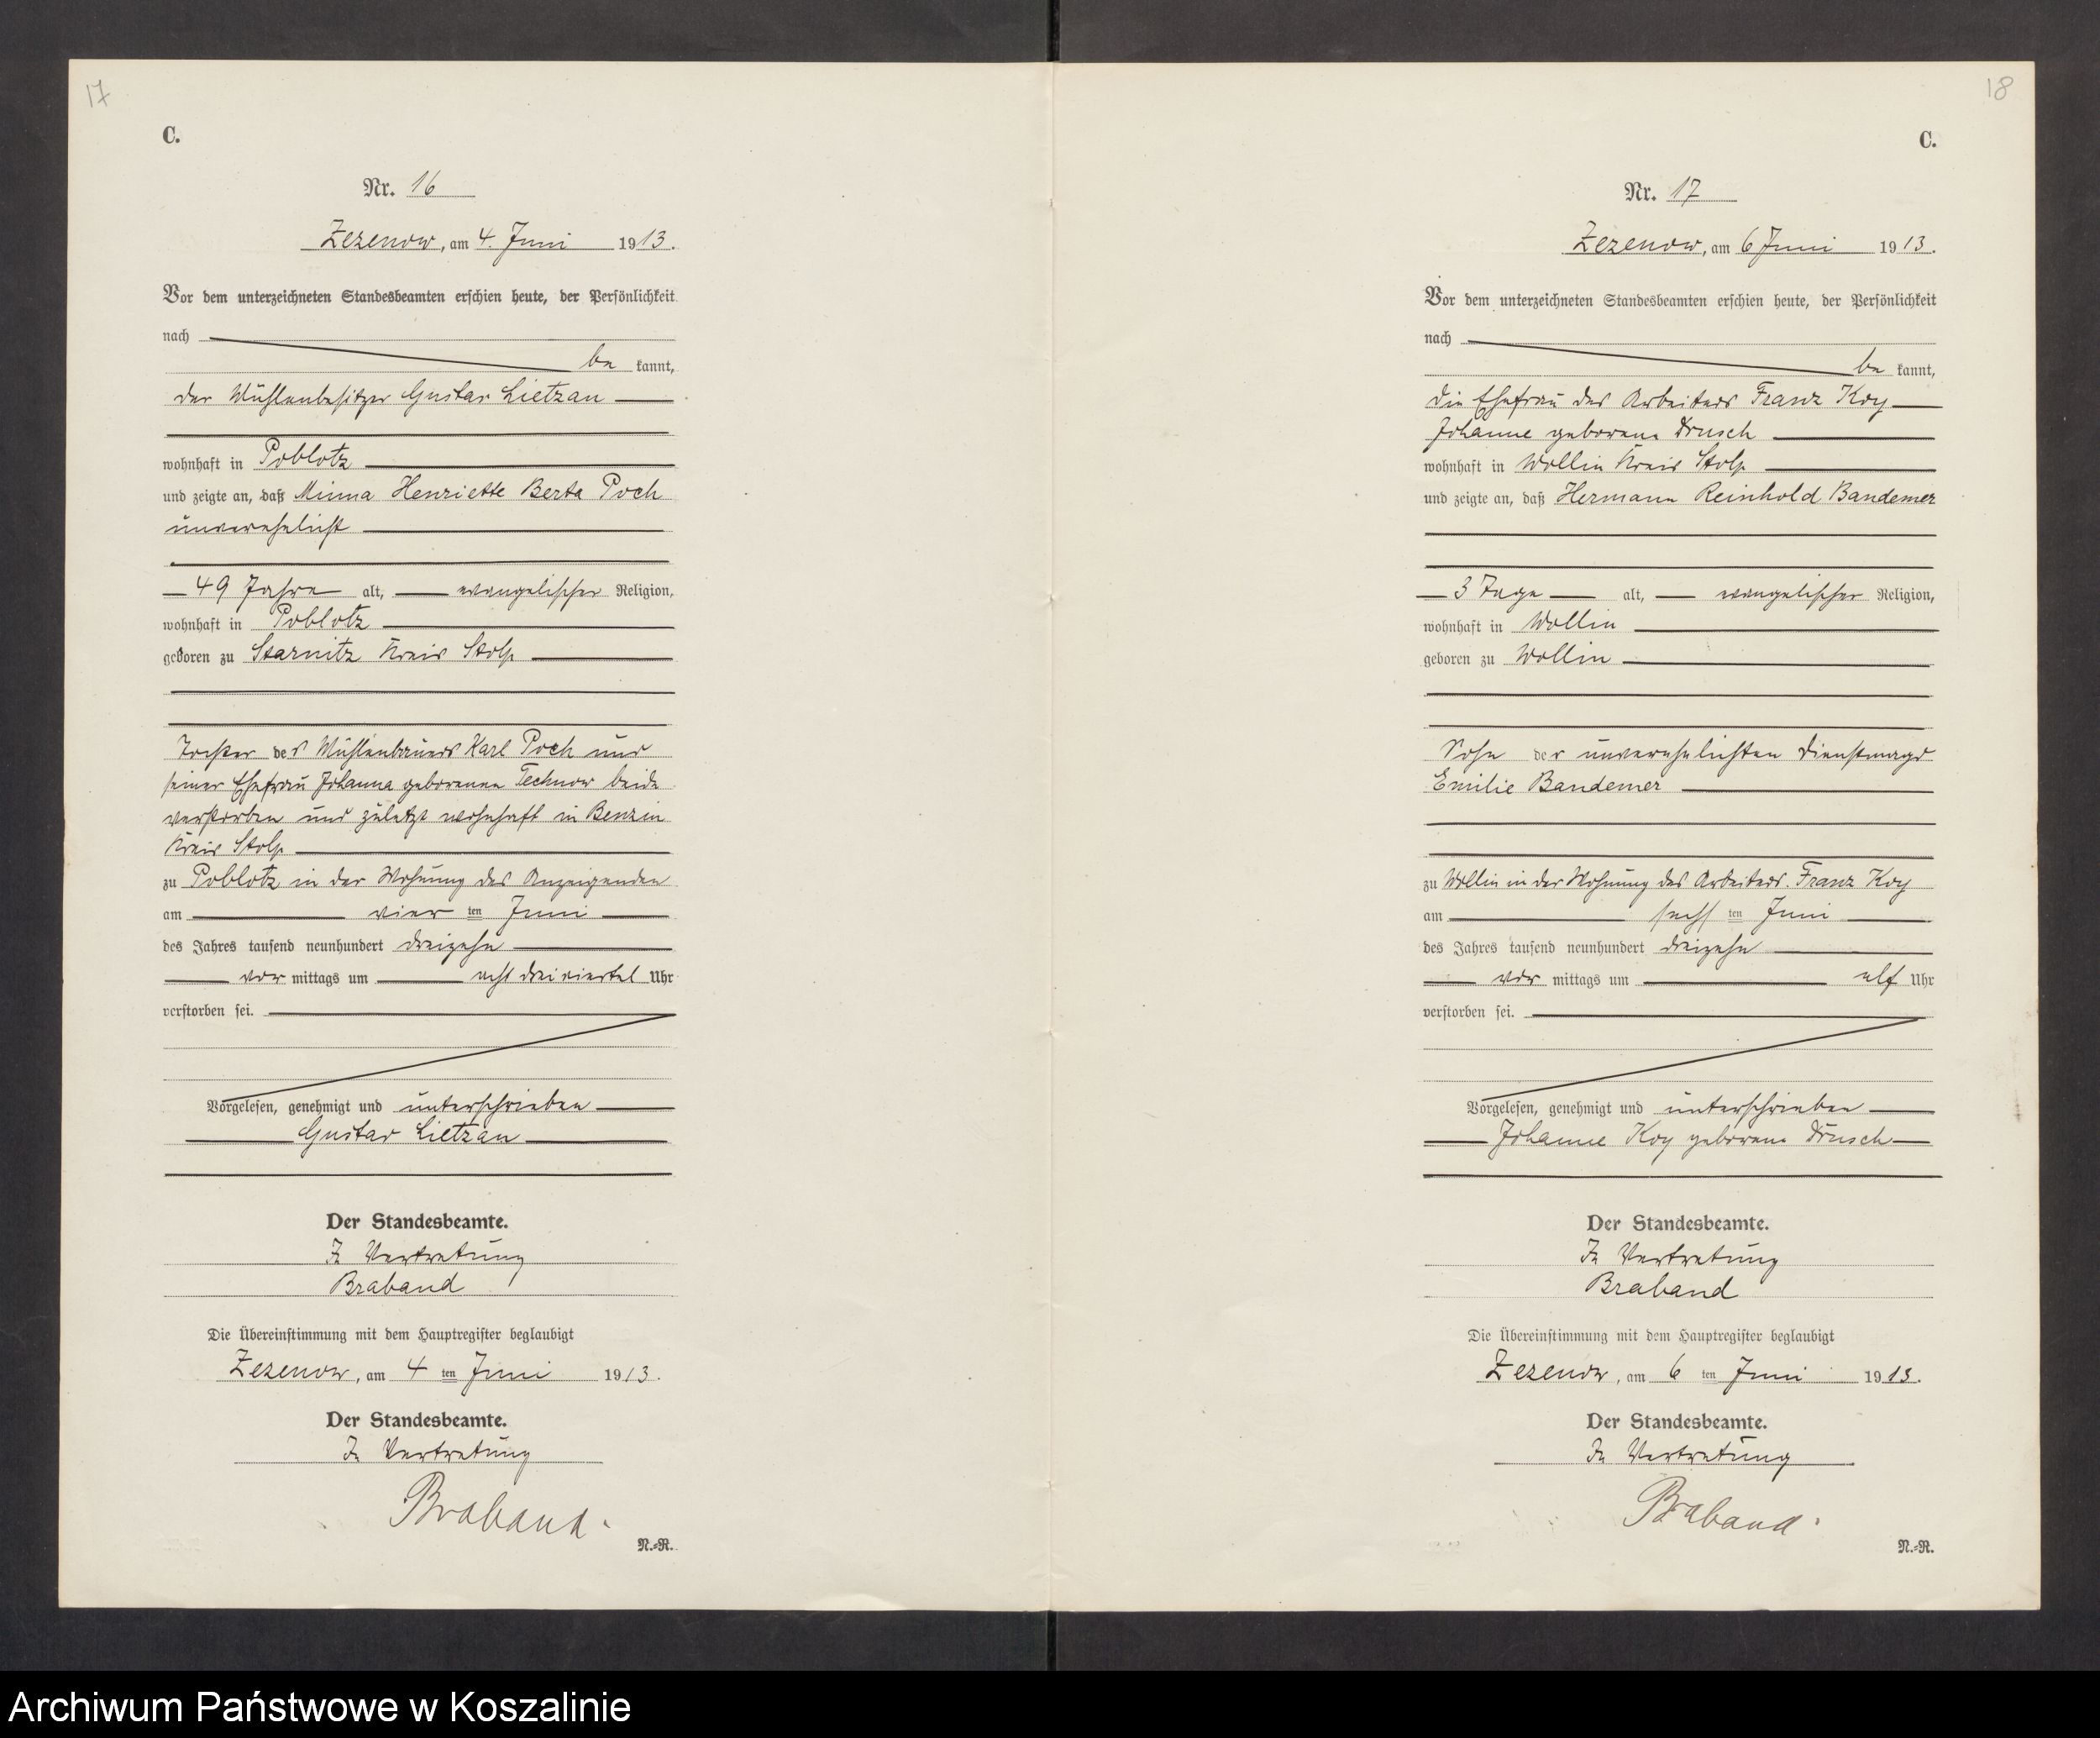 17
C.
Nr. 16
Zezenow, am 4. Juni 1913.
Vor dem unterzeichneten Standesbeamten erschien heute, der Persönlichkeit
nach
be kannt,
der Mühlenbesitzer Gustav Lietzau
wohnhaft in Poblotz
und zeigte an, daß Minna Henriette Berta Poch
unverehelicht
49 Jahre alt, evangelischer Religion,
wohnhaft in Poblotz
geboren zu Starnitz Kreis Stolp
Tochter des Mühlenbauers Karl Poch und
seiner Ehefrau Johanna geborenen Technow beide
verstorben und zuletzt wohnhaft in Benzin
Kreis Stolp
zu Poblotz in der Wohnung des Anzeigenden
am vier ten Juni
des Jahres tausend neunhundert dreizehn
vor mittags um acht dreiviertel Uhr
verstorben sei.
Vorgelesen, genehmigt und unterschrieben
Gustav Lietzau
Der Standesbeamte.
In Vertretung
Braband
Die Übereinstimmung mit dem Hauptregister beglaubigt
Zezenow, am 4 ten Juni 1913.
Der Standesbeamte.
In Vertretung
Braband.
N.-R.
18
C.
Nr. 17
Zezenow, am 6 Juni 1913.
Vor dem unterzeichneten Standesbeamten erschien heute, der Persönlichkeit
nach
be kannt,
die Ehefrau des Arbeiters Franz Koy
Johanne geborene Drusch
wohnhaft in Wollin Kreis Stolp
und zeigte an, daß Hermann Reinhold Bandemer
3 Tage alt, evangelischer Religion,
wohnhaft in Wollin
geboren zu Wollin
Sohn der unverehelichten Dienstmagd
Emilie Bandemer
zu Wollin in der Wohnung des Arbeiters Franz Koy
am sechs ten Juni
des Jahres tausend neunhundert dreizehn
vor mittags um elf Uhr
verstorben sei.
Vorgelesen, genehmigt und unterschrieben
Johanne Koy geborene Drusch
Der Standesbeamte.
In Vertretung
Braband
Die Übereinstimmung mit dem Hauptregister beglaubigt
Zezenow, am 6 ten Juni 1913.
Der Standesbeamte.
In Vertretung
Braband.
N.-R.
Archiwum Państwowe w Koszalinie